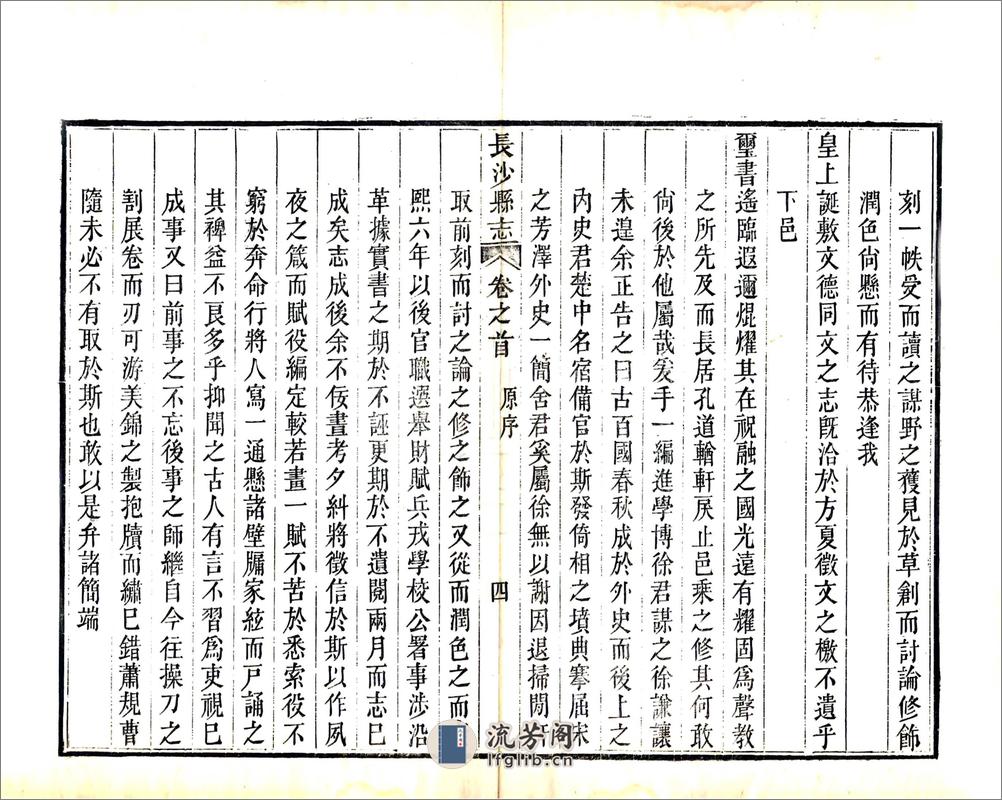 刻一帙受而讀之謀野之獲見於草創而討論修飾
潤色尙懸而有待恭逢我
皇上誕敷文德同文之志旣洽於方夏徵文之檄不遺乎
下邑
璽書遙臨遐邇焜燿其在祝融之國光遠有耀固爲聲教
之所先及而長居孔道輶軒戾止邑乘之修其何敢
尙後於他屬哉爰手一編進學博徐君謀之徐謙讓
未遑余正告之曰古百國春秋成於外史而後上之
內史君楚中名宿備官於斯發倚相之墳典搴屈宋
之芳澤外史一簡舍君奚屬徐無以謝因退掃閒
長沙縣志 卷之首 原序 四
取前刻而討之論之修之飾之又從而潤色之而
熙六年以後官職選舉財賦兵戎學校公署事涉沿
革據實書之期於不誣更期於不遺閱兩月而志巳
成矣志成後余不佞晝考夕糾將徵信於斯以作夙
夜之箴而賦役編定較若畫一賦不苦於悉索役不
窮於奔命行將人寫一通懸諸壁牖家絃而戸誦之
其裨益不良多乎抑聞之古人有言不習爲吏視巳
成事又曰前事之不忘後事之師繼自今往操刀之
割展卷而刃可游美錦之製抱牘而繡巳錯蕭規曹
隨未必不有取於斯也敢以是弁諸簡端
流芳阁
lfglib.cn